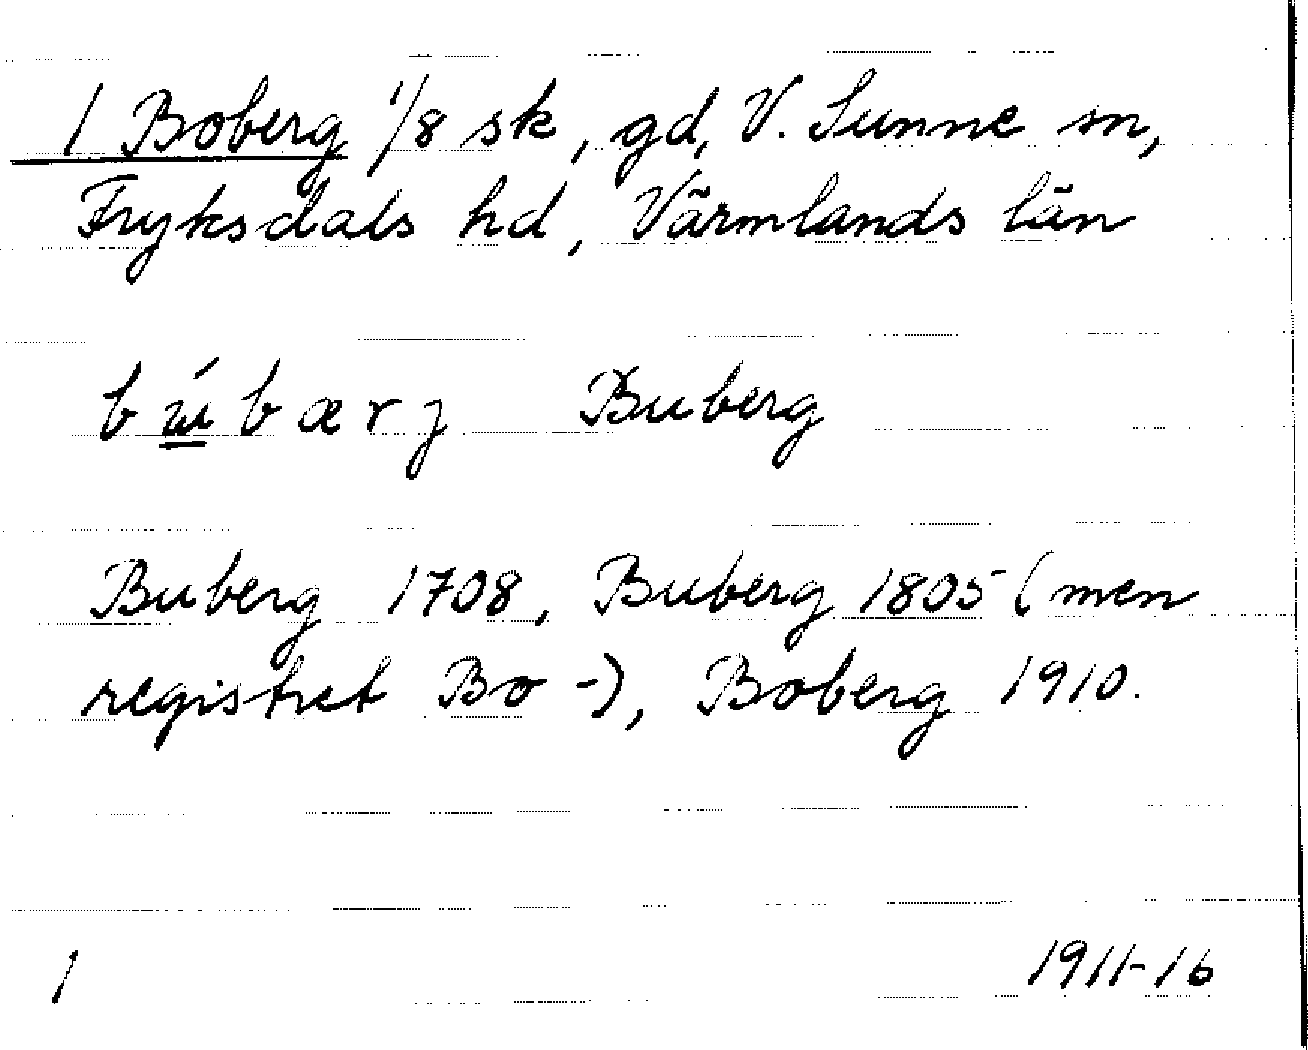 1 Boberg 1/8 sk, gd, V. Sunne sn,
Fryksdals hd, Värmlands län
bẃbærj Buberg
Buberg 1708, Buberg 1805 (men
registret Bo-), Boberg 1910.
1 1911-16